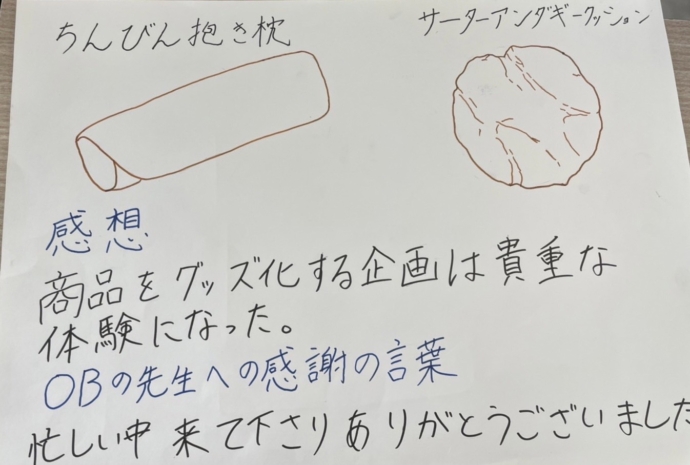 ちんびん抱き枕
サーターアンダギークッション
感想
商品をグッズ化する企画は貴重な
体験になった。
OBの先生への感謝の言葉
忙しい中来て下さりありがとうございました